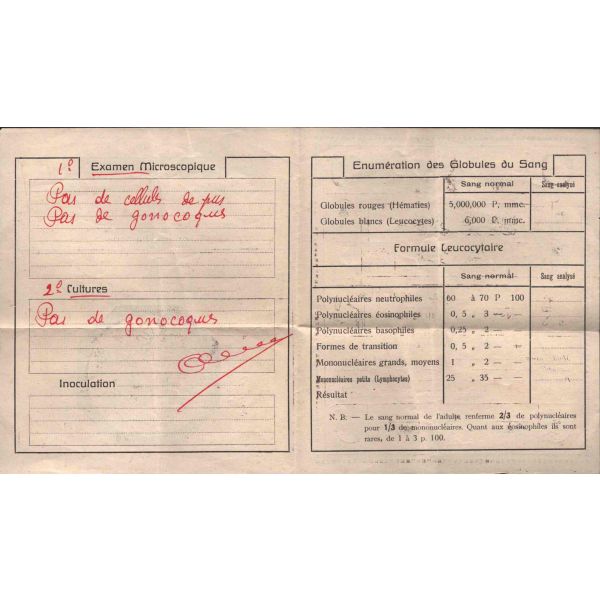 1º Examen Microscopique
Pas de cellules de pus
Pas de gonocoques
2º Cultures
Pas de gonocoques
Inoculation
Enumération des Globules du Sang
Sang normal Sang analysé
Globules rouges (Hématies) 5,000,000 P. mmc.
Globules blancs (Leucocytes) 6,000 P. mmc.
Formule Leucocytaire
Sang normal Sang analysé
Polynucléaires neutrophiles 60 à 70 P 100
Polynucléaires éosinophiles 0, 5 „ 3 — „ —
Polynucléaires basophiles 0,25 „ 2 — —
Formes de transition 0, 5 „ 2 — —
Mononucléaires grands, moyens 1 „ 2 — —
Mononucléaires petits (Lymphocytes) 25 „ 35 — —
Résultat
N. B. — Le sang normal de l'adulte renferme 2/3 de polynucléaires
pour 1/3 de mononucléaires. Quant aux éosinophiles ils sont
rares, de 1 à 3 p. 100.